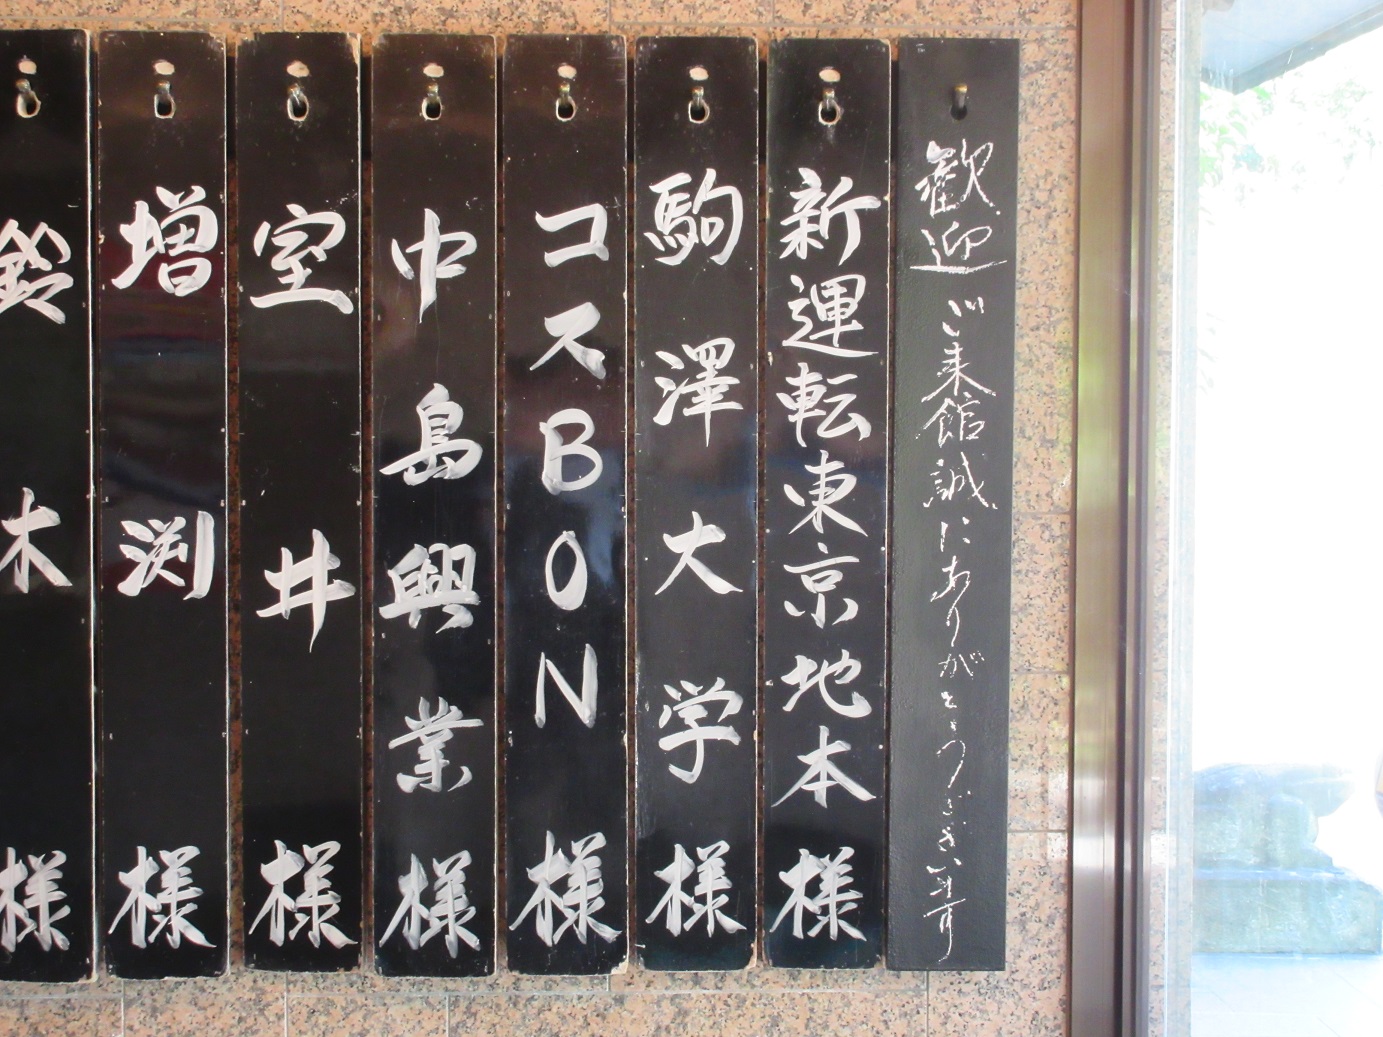 歓迎ご来館誠にありがとうございます
新運転東京地本様
駒澤大学様
コスBON様
中島興業様
室井様
増渕様
鈴木様